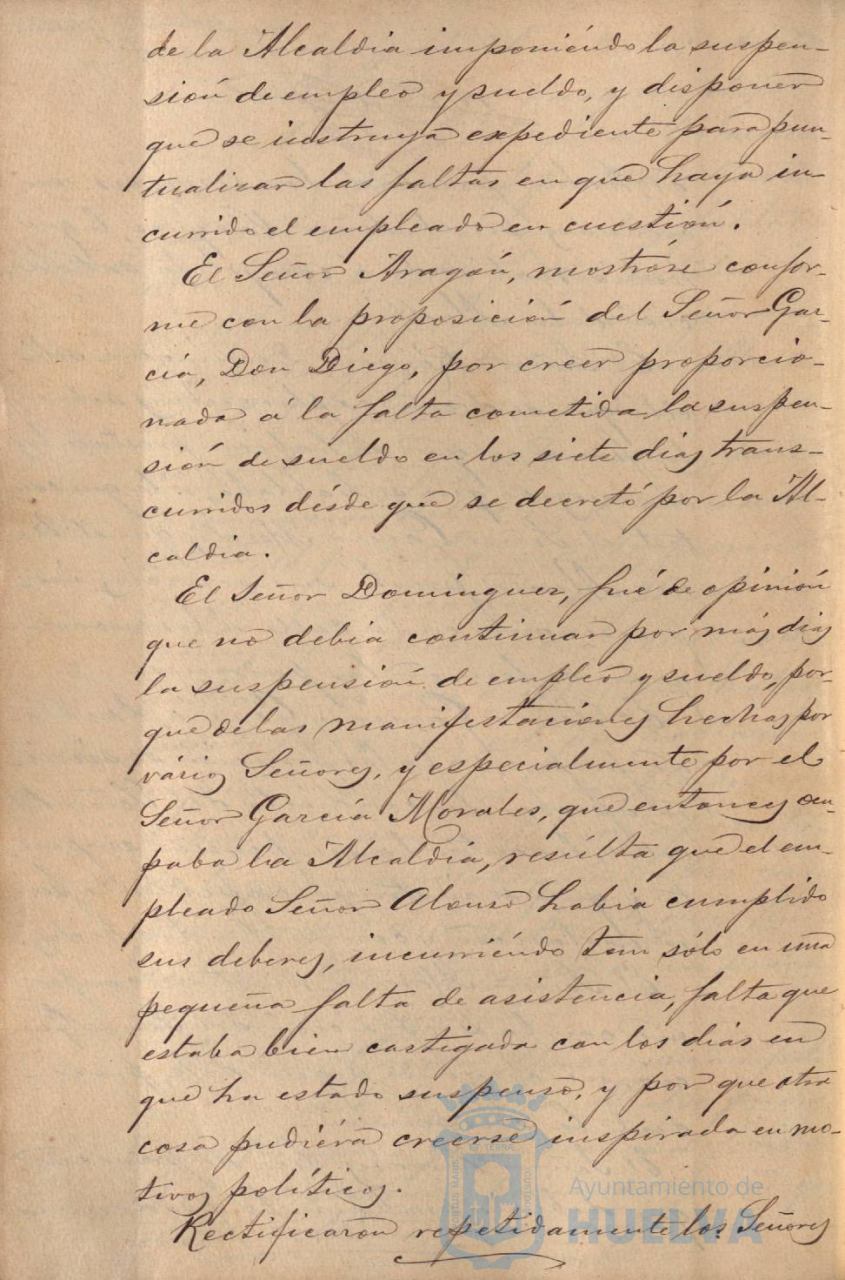 de la Alcaldia imponiéndo la suspen-
sión de empleo y sueldo, y disponer
que se instruya expediente para pun-
tualizar las faltas en que haya in-
currido el empleado en cuestión.
El Señor Aragón, mostróse confor-
me con la proposición del Señor Gar-
cía, Don Diego, por creer proporcio-
nada á la falta cometida la suspen-
sión de sueldo en los siete dias trans-
curridos désde que se decretó por la Al-
caldia.
El Señor Dominguez, fué de opinión
que no debia continuar por más dias
la suspensión de empleo y sueldo, por-
que de las manifestaciones hechas por
vários Señores, y especialmente por el
Señor García Morales, que entonces ocu-
paba la Alcaldía, resúlta que el em-
pleado Señor Alonso habia cumplido
sus deberes, incurriéndo tan sólo en una
pequeña falta de asistencia, falta que
estaba bien castigada con los dias en
que ha estado suspenso, y por que otra
cosa pudiéra creerse inspirada en mo-
tivos políticos.
Rectificaron repetidamente los Señores
Ayuntamiento de
HUELVA